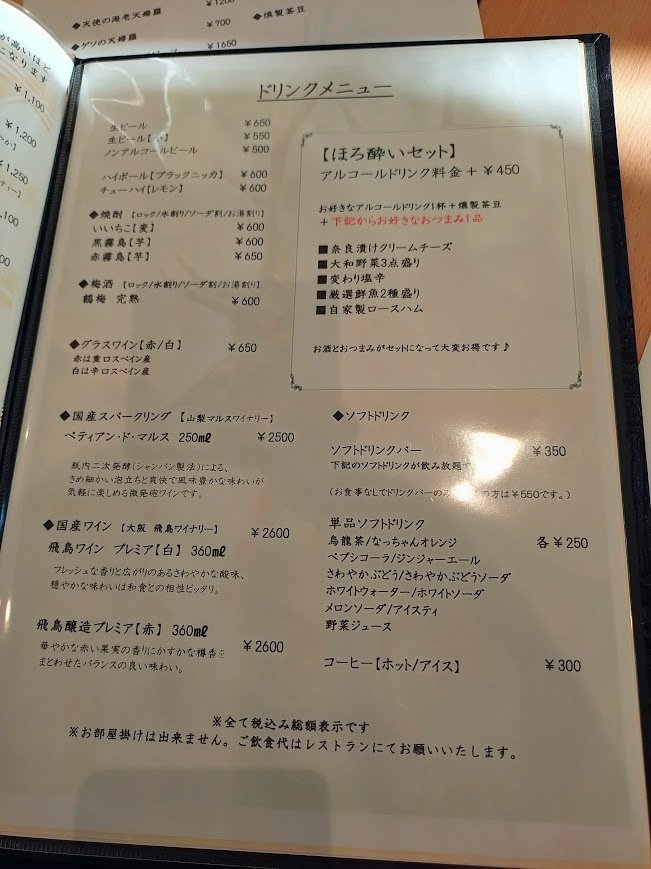 ◆天使の海老天婦羅 ￥1200
◆ゲソの天婦羅 ￥700
￥1650
◆燻製茶豆
が高いほど
になります
￥1,100
￥1,200
￥1,250
ドリンクメニュー
生ビール ￥650
生ビール【小】 ￥550
ノンアルコールビール ￥500
ハイボール【ブラックニッカ】 ￥600
チューハイ【レモン】 ￥600
◆焼酎 【ロック/水割り/ソーダ割/お湯割り】
いいちこ【麦】 ￥600
黒霧島【芋】 ￥600
赤霧島【芋】 ￥650
◆梅酒 【ロック/水割り/ソーダ割/お湯割り】
鶴梅 完熟 ￥600
◆グラスワイン【赤/白】 ￥650
赤は重口スペイン産
白は辛口スペイン産
【ほろ酔いセット】
アルコールドリンク料金＋￥450
お好きなアルコールドリンク1杯＋燻製茶豆
＋下記からお好きなおつまみ1品
■奈良漬けクリームチーズ
■大和野菜3点盛り
■変わり塩辛
■厳選鮮魚2種盛り
■自家製ロースハム
お酒とおつまみがセットになって大変お得です♪
◆国産スパークリング 【山梨マルスワイナリー】
ペティアン・ド・マルス 250㎖ ￥2500
瓶内二次発酵(シャンパン製法)による、
きめ細かい泡立ちと爽快で風味豊かな味わいが
気軽に楽しめる微発砲ワインです。
◆国産ワイン 【大阪 飛鳥ワイナリー】
飛鳥ワイン プレミア【白】 360㎖ ￥2600
フレッシュな香りと広がりのあるさわやかな酸味、
穏やかな味わいは和食との相性ピッタリ。
飛鳥醸造プレミア【赤】 360㎖ ￥2600
華やかな赤い果実の香りにかすかな樽香を
まとわせたバランスの良い味わい。
◆ソフトドリンク
ソフトドリンクバー ￥350
下記のソフトドリンクが飲み放題
(お食事なしでドリンクバーのみ の方は￥550です。)
単品ソフトドリンク 各￥250
烏龍茶/なっちゃんオレンジ
ペプシコーラ/ジンジャーエール
さわやかぶどう/さわやかぶどうソーダ
ホワイトウォーター/ホワイトソーダ
メロンソーダ/アイスティ
野菜ジュース
コーヒー【ホット/アイス】 ￥300
※全て税込み総額表示です
※お部屋掛けは出来ません。ご飲食代はレストランにてお願いいたします。